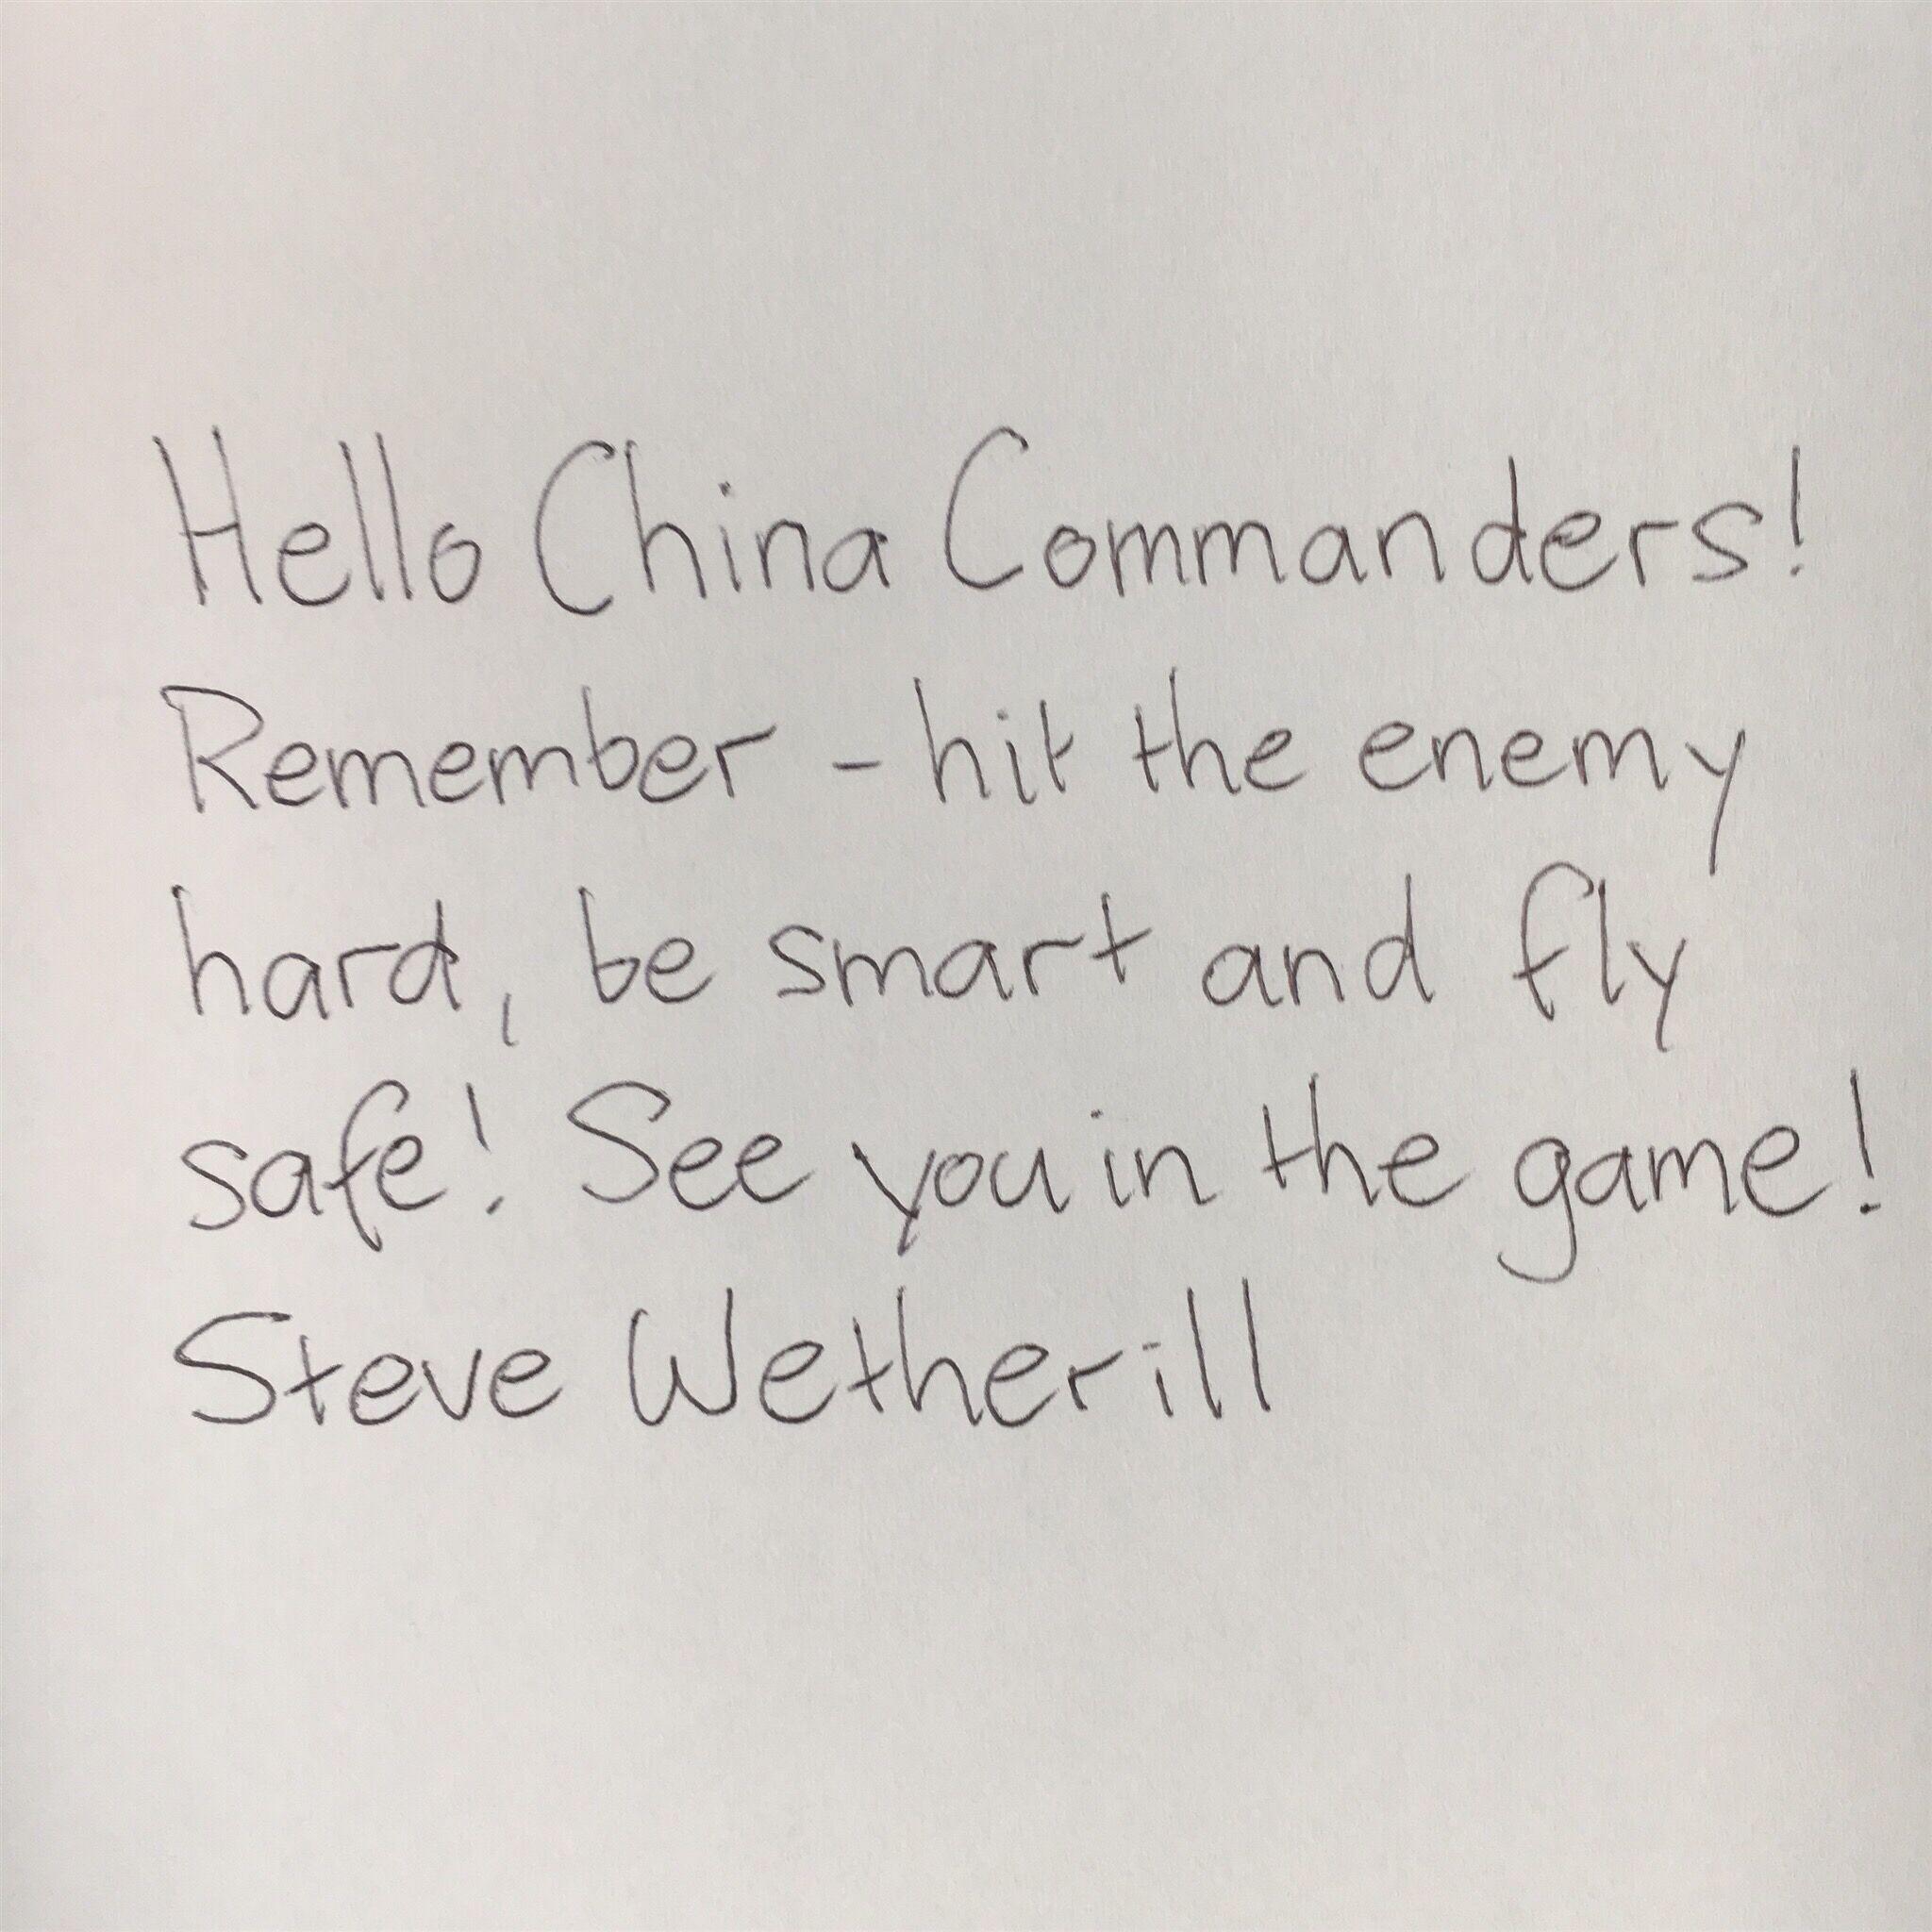 Hello China Commanders!
Remember - hit the enemy
hard, be smart and fly
safe! See you in the game!
Steve Wetherill